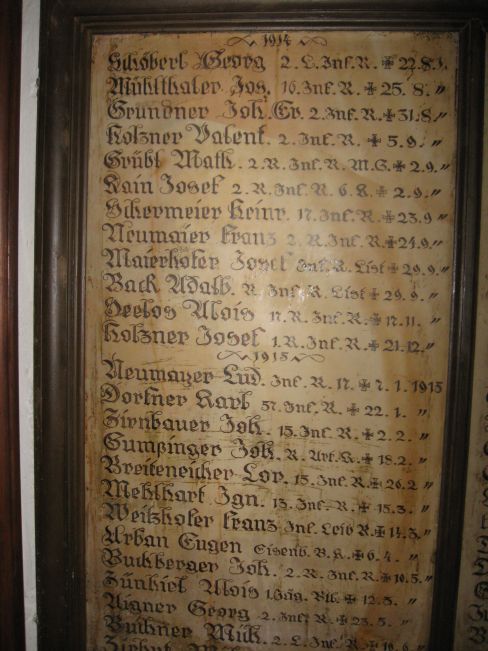 1914
Schöberl Georg 2. L. Inf. R. ✠ 22. 8. 1.
Mühlthaler Jos. 16. Inf. R. ✠ 25. 8. "
Grundner Joh. Ev. 2. Inf. R. ✠ 31. 8. "
Holzner Valent. 2. Inf. R. ✠ 5. 9. "
Grübl Math. 2. R. Inf. R. M. G. ✠ 2. 9. "
Kain Josef 2. R. Inf. R. 6. 8. ✠ 2. 9. "
Schermeier Heinr. 17. Inf. R. ✠ 23. 9 "
Neumaier Franz 2. R. Inf. R. ✠ 24. 9. "
Maierhofer Josef Inf. R. List ✠ 29. 9. "
Back Adalb. R. Inf. R. List ✠ 29. 9. "
Seelos Alois 17. R. Inf. R. ✠ 17. 11. "
Holzner Josef 1. R. Inf. R. ✠ 21. 12. "
1915
Neumayer Lud. Inf. R. 17. ✠ 7. 1. 1915
Dorfner Karl 57. Inf. R. ✠ 22. 1. "
Zirnbauer Joh. 15. Inf. R. ✠ 2. 2. "
Gumpinger Joh. R. Art. R. ✠ 18. 2. "
Breiteneicher Lor. 15. Inf. R. ✠ 26. 2 "
Mehlhart Ign. 13. Inf. R. ✠ 15. 3. "
Weitzhofer Franz Inf. Leib R. ✠ 14. 3. "
Urban Eugen Eisenb. B. K. ✠ 6. 4. "
Buchberger Joh. 2. R. Inf. R. ✠ 10. 5. "
Zünkiel Alois 1. Jäg. Btl. ✠ 12. 5. "
Aigner Georg 2. Inf. R. ✠ 23. 5. "
Buchner Mich. 2. L. Inf. R.